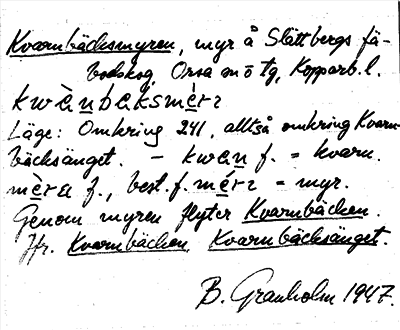 Kvarnbäcksmyren, myr å Slättbergs fä-
bodskog, Orsa sn ö tg, Kopparb. l.
kwὲnbɛksmὲrɪ
Läge: Omkring 241, alltså omkring Kvarn-
bäcksänget. – kwɛn f. = kvarn.
mὲra f., best. f. mὲrɪ = myr.
Genom myren flyter Kvarnbäcken.
Jfr. Kvarnbäcken, Kvarnbäcksänget.
B. Granholm 1947.